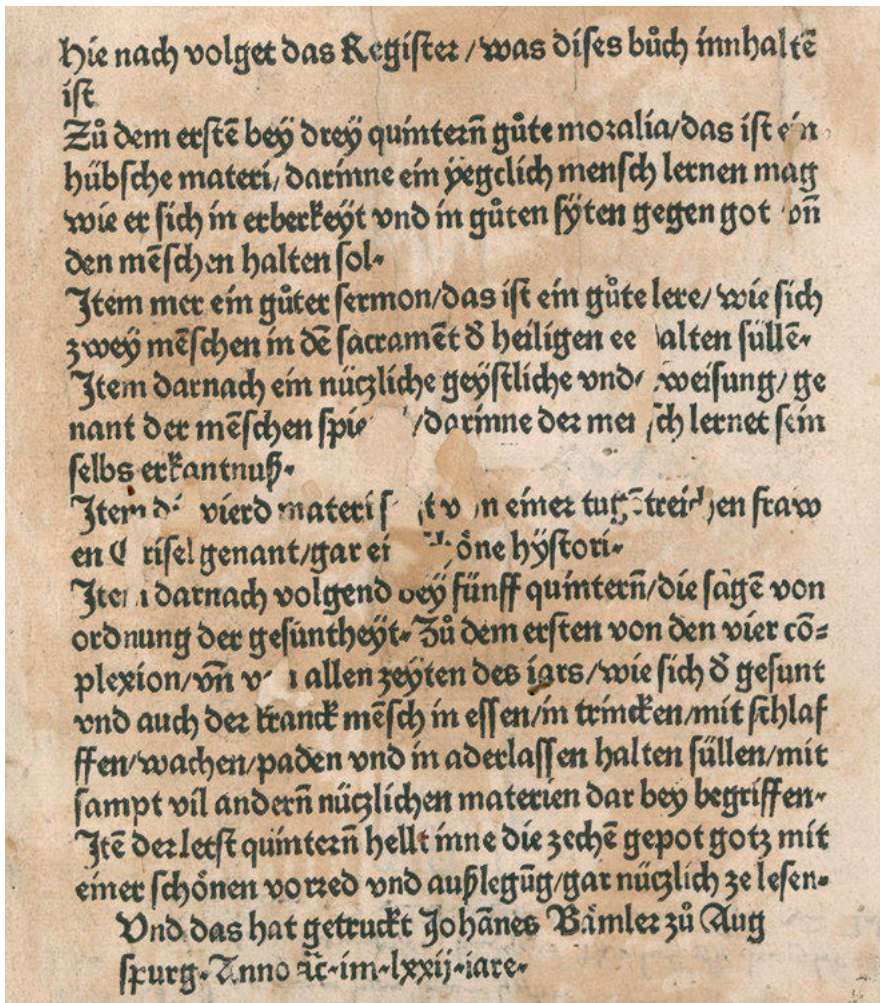 Hie nach volget das Register / was dises bůch innhaltē
ist
Zů dem erstē bey drey quintern̄ gůte moralia/das ist ein
hübsche materi/ darinne ein yegclich mensch lernen mag
wie er sich in erberkeyt vnd in gůten syten gegen got vn̄
den mēschen halten sol·
Item mer ein gůter sermon/das ist ein gůte lere/ wie sich
zwey mēschen in dē sacramēt đ heiligen ee alten süllē·
Item darnach ein nüczliche geystliche vnd weisung/ ge
nant der mēschen spie /darinne der mensch lernet sein
selbs erkantnuß·
Item di vierd materi von einer tugētreichen fraw
en Grisel genant/gar ei schöne hystori·
Item darnach volgend bey fünff quintern̄/die sagē von
ordnung der gesuntheyt· Zů dem ersten von den vier cō=
plexion/vn̄ allen zeyten des iars/wie sich đ gesunt
vnd auch der kranck mēsch in essen/in trincken/mit schlaf
ffen/wachen/paden vnd in aderlassen halten süllen/mit
sampt vil andern̄ nüczlichen materien dar bey begriffen·
Itē der letst quintern̄ hellt inne die zechē gepot gotz mit
einer schönen vorred vnd außlegūg/gar nüczlich ze lesen·
Vnd das hat getruckt Johānes Bämler zů Aug
spurg· Anno ꝛc̄·im·lxxij·iare·